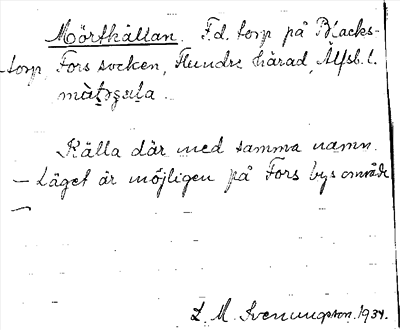 Mörtkällan. F.d. torp på Blacks-
torp, Fors socken, Flundre härad, Älfsb. l.
Källa där med samma namn.
– Läget är möjligen på Fors bys område
L. M. Svenungsson. 1934.